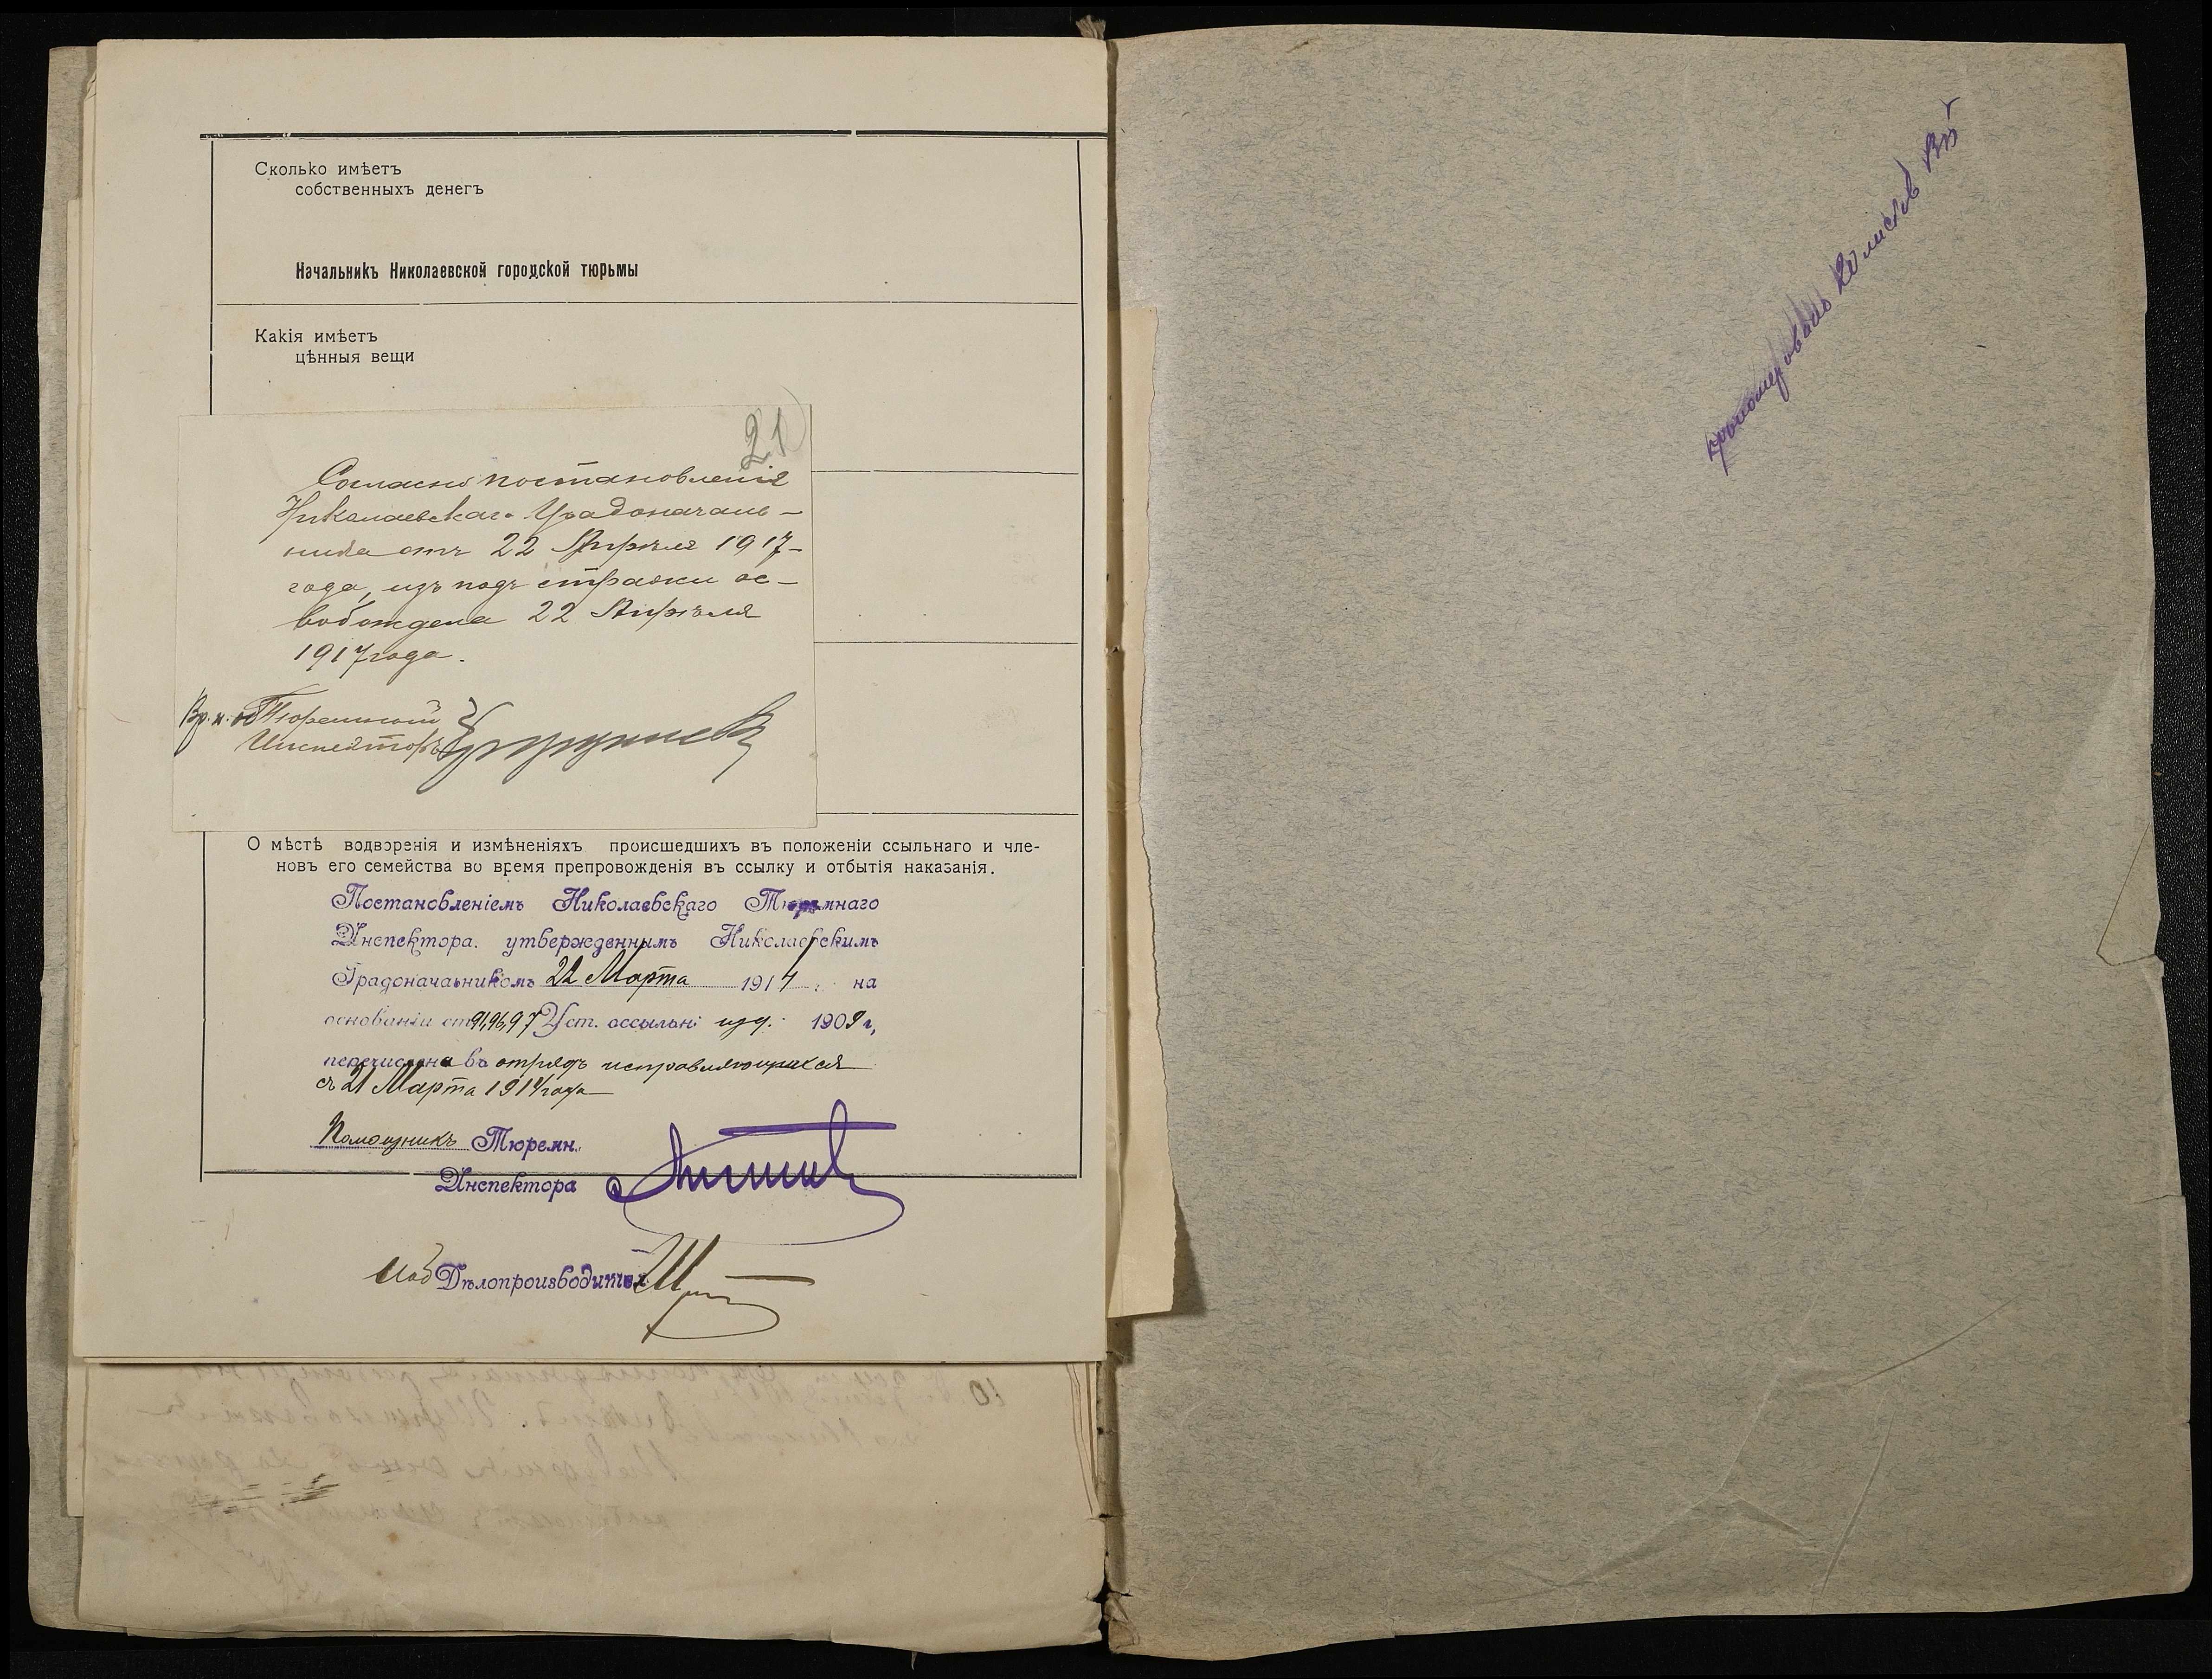 Сколько имѣетъ
собственныхъ денегъ
Начальникъ Николаевской городской тюрьмы
Какія имѣетъ
цѣнныя вещи
21
Согласно постановленія
Николаевскаго Градоначаль-
ника отъ 22 Апрѣля 1917
года, изъ подъ стражи ос-
вобождена 22 Апрѣля
1917 года.
Вр. и. об Тюремный
Инспекторъ
О мѣстѣ водворенія и измѣненіяхъ происшедшихъ въ положеніи ссыльнаго и чле-
новъ его семейства во время препровожденія въ ссылку и отбытія наказанія.
Постановленіемъ Николаевскаго Тюремнаго
Инспектора. утвержденнымъ Николаевскимъ
Градоначальникомъ 22 Марта 1914 г. на
основаніи ст 91,96,97 Уст. ссыльн: изд. 1909 г,
перечислена въ отрядъ исправляющихся
съ 21 Марта 1914 года
Помощникъ Тюремн.
Инспектора
Дѣлопроизводитель
пронумеровано 20 листов